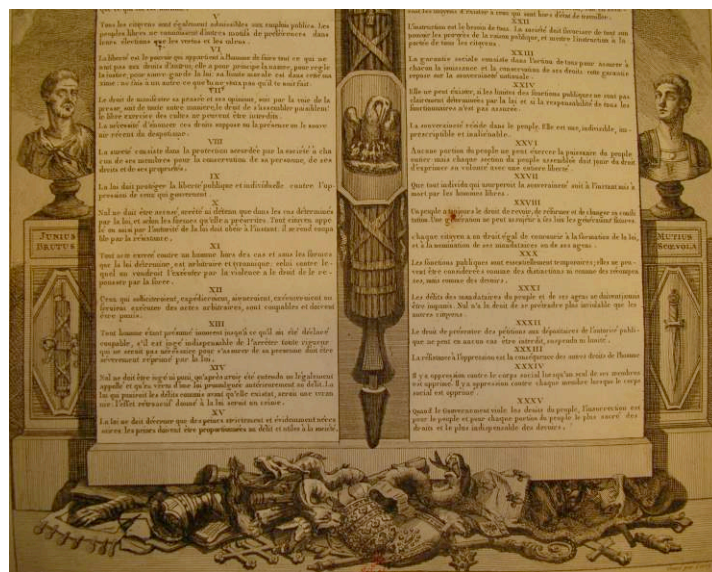 V
Tous les citoyens sont également admissibles aux emplois publics. Les
peuples libres ne connaissent d'autres motifs de préférences dans
leurs élections que les vertus et les talens.
VI
La liberté est le pouvoir qui appartient à l'homme de faire tout ce qui ne
nuit pas aux droits d'autrui; elle a pour principe la nature, pour regle
la justice, pour sauve-garde la loi: sa limite morale est dans cette ma
xime: ne fais à un autre ce que tu ne veux pas qu'il te soit fait.
VII
Le droit de manifester sa pensée et ses opinions, soit par la voie de la
presse, soit de toute autre maniere, le droit de s'assembler paisiblem.t
le libre exercice des cultes ne peuvent être interdits.
La nécessité d'énoncer ces droits suppose ou la présence ou le souve
nir récent du despotisme.
VIII
La sureté consiste dans la protection accordée par la société à cha
cun de ses membres pour la conservation de sa personne, de ses
droits et de ses propriétés.
IX
La loi doit protéger la liberté publique et individuelle contre l'op
pression de ceux qui gouvernent
X
Nul ne doit être accusé, arrêté ni détenu que dans les cas déterminés
par la loi, et selon les formes qu'elle a préscrites. Tout citoyen appe
lé ou saisi par l'autorité de la loi doit obéir à l'instant: il se rend coupa
ble par la résistance.
XI
Tout acte exercé contre un homme hors des cas et sans les formes
que la loi détermine, est arbitraire et tyrannique: celui contre le-
quel on voudroit l'exécuter par la violence a le droit de le re-
pousser par la force.
XII
Ceux qui solliciteraient, expédieraient, signeraient, exécuteraient ou
feraient exécuter des actes arbitraires, sont coupables et doivent
être punis.
XIII
Tout homme étant présumé innocent jusqu'à ce qu'il ait été déclaré
coupable, s'il est jugé indispensable de l'arrêter toute rigueur
qui ne serait pas nécessaire pour s'assurer de sa personne doit être
sévèrement réprimée par la loi.
XIV
Nul ne doit être jugé ni puni, qu'après avoir été entendu ou légalement
appellé et qu'en vertu d'une loi promulguée antérieurement au délit. La
loi qui punirait les délits commis avant qu'elle existat, serait une tyran
nie: l'effet rétroactif donné à la loi serait un crime.
XV
La loi ne doit décerner que des peines strictement et évidemment néces
saires: les peines doivent être proportionnées au délit et utiles à la société.
XXII
L'instruction est le besoin de tous. La société doit favoriser de tout son
pouvoir les progrès de la raison publique, et mettre l'instruction à la
portée de tous les citoyens.
XXIII
La garantie sociale consiste dans l'action de tous pour assurer à
chacun la jouissance et la conservation de ses droits: cette garantie
repose sur la souveraineté nationale.
XXIV
Elle ne peut éxister, si les limites des fonctions publiques ne sont pas
clairement déterminées par la loi et si la responsabilité de tous les
fonctionnaires n'est pas assurée.
La souveraineté réside dans le peuple. Elle est une, indivisible, im-
prescriptible et inaliénable.
XXVI
Aucune portion du peuple ne peut éxercer la puissance du peuple
entier mais chaque section du peuple assemblée doit jouir du droit
d'exprimer sa volonté avec une entiere liberté.
XXVII
Que tout individu qui usurperait la souveraineté soit à l'instant mis à
mort par les hommes libres.
XXVIII
Un peuple a toujours le droit de revoir, de réformer et de changer sa consti
tution. Une génération ne peut assujetir à ses loix les générations futures.
chaque citoyen a un droit égal de concourir à la formation de la loi,
et à la nomination de ses mandataires ou de ses agens.
XXX
Les fonctions publiques sont essentiellement temporaires; elles ne peu-
vent être considérées comme des distinctions ni comme des récompen
ses, mais comme des devoirs.
XXXI
Les délits des mandataires du peuple et de ses agens ne doivent jamais
être impunis. Nul n'a le droit de se prétendre plus inviolable que les
autres citoyens.
XXXII
Le droit de présenter des pétitions aux dépositaires de l'autorité publi-
que ne peut en aucun cas être interdit, suspendu ni limité.
XXXIII
La résistance à l'oppression est la conséquence des autres droits de l'homme
XXXIV
Il y a oppression contre le corps social lorsqu'un seul de ses membres
est opprimé. Il y a oppression contre chaque membre lorsque le corps
social est opprimé
XXXV
Quand le Gouvernement viole les droits du peuple, l'insurrection est
pour le peuple et pour chaque portion du peuple le plus sacré des
droits et le plus indispensable des devoirs.
JUNIUS
BRUTUS
MUTIUS
SCŒVOLA